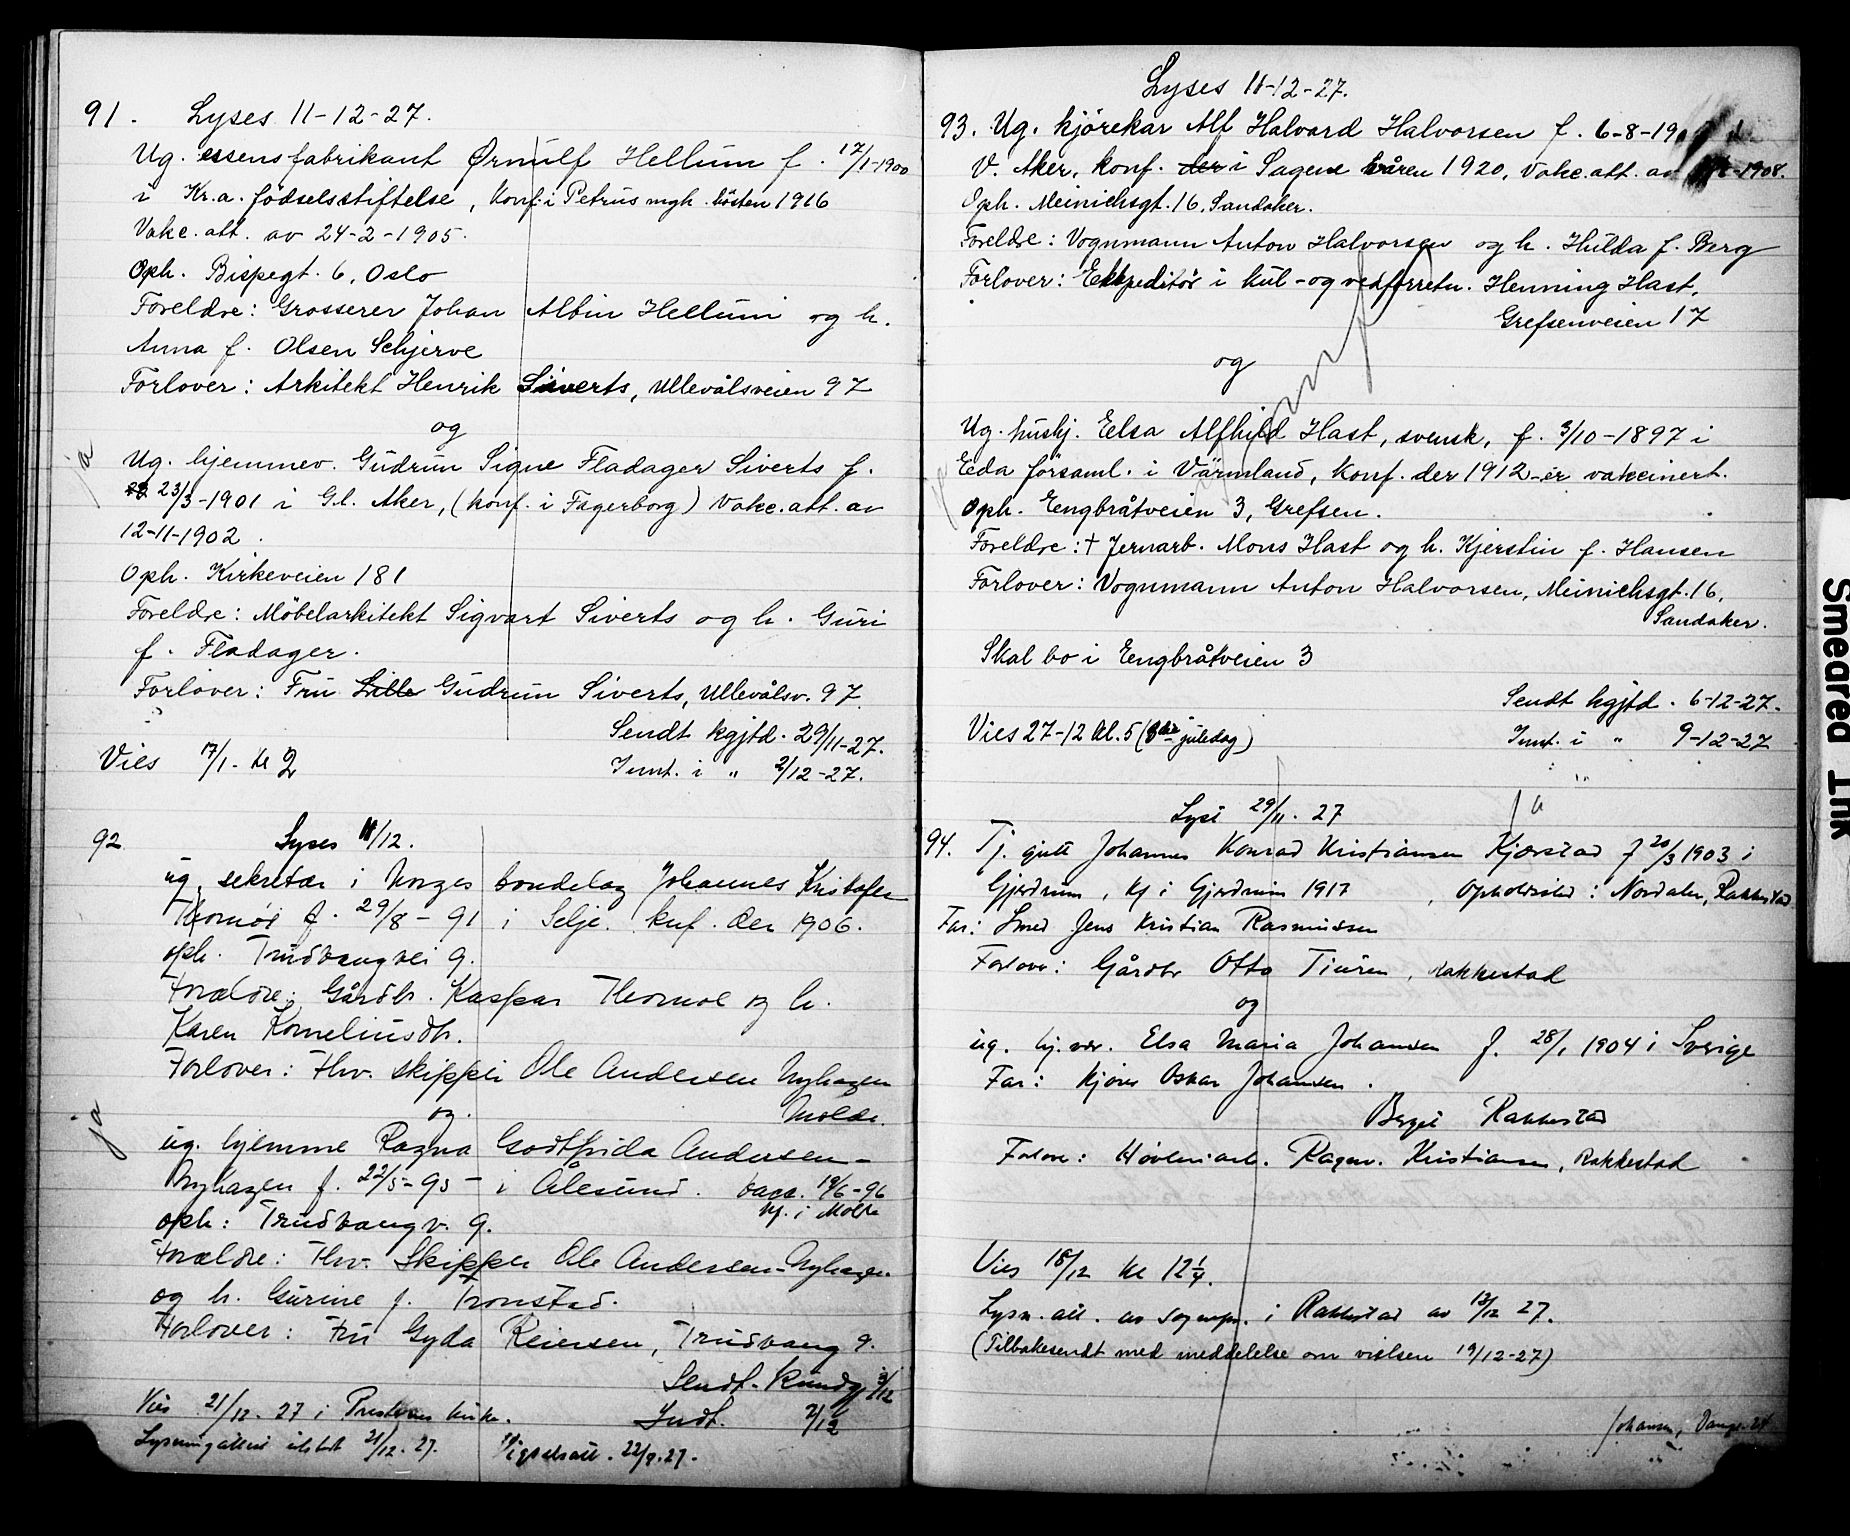 91. Lyses 11-12-27.
Ug. essensfabrikant Ørnulf Hellum f. 17/1-1900
i Kr.a. fødselsstiftelse, konf. i Petrus mgh. høsten 1916
Vakc. att. av 24-2-1905.
Oph. Bispegt. 6, Oslo
Foreldre: Grosserer Johan Albin Hellum og h.
Anna f. Olsen Schjerve
Forlover: Arkitekt Henrik Siverts, Ullevålsveien 97
og
ja
Ug. hjemmev. Gudrun Signe Fladager Siverts f.
23/3-1901 i Gl. Aker, (konf. i Fagerborg) Vakc. att. av
12-11-1902.
Oph. Kirkeveien 181
Foreldre: Møbelarkitekt Sigvart Siverts og h. Guri
f. Fladager.
Forlover: Fru Lille Gudrun Siverts, Ullevålsv. 97.
Sendt kgjtd. 29/11-27.
Vies 17/1. kl 2
Innt. i " 2/12-27.
92. Lyses 11/12.
ug. sekretær i Norges bondelag Johannes Kristofer
f. 29/8-91 i Selje. knf. der 1906.
oph. Trudvangvei 9.
Forældre: Gårdbr. Kaspar og h.
Karen Korneliusdtr.
Forlover: Fhv. skipper Ole Andersen Nyhagen
Molde.
og.
ja
ug. hjemme Ragna Godtfrida Andersen-
Nyhagen f. 22/5-95- i Ålesund. vacc. 19/6-96
kf. i Molde
oph: Trudvangv. 9.
Forældre: Fhv. Skipper Ole Andersen-Nyhagen
og h. Gurine f. Tronstad.
Forlover: Fru Gyda Reiersen, Trudvang 9.
Sendt. Kundgj 3/12
Vies 21/12.27 i kirke.
Indt. 7/12
Lysningsattest utstedt 21/12.27. Vigselsatt. 22/9.27.
Lyses 11-12-27.
93. Ug. kjørekar Alf Halvard Halvorsen f. 6-8-19
V. Aker, konf. der i Sagene våren 1920, Vakc. att. av -1908.
Oph. Meinichsgt. 16, Sandaker.
Foreldre: Vognmann Anton Halvorsen og h. Hulda f. Berg
Forlover: Ekspeditør i kul- og vedforretn. Henning Hast,
Grefsenveien 17
og
Ug. hushj. Elsa Alfhild Hast, svensk, f. 3/10-1897 i
Eda församl. i Värmland, konf. der 1912 - er vakcinert.
Oph. Engbråtveien 3, Grefsen.
Foreldre: + Jernarb. Mons Hast og h. Kjerstin f. Hansen
Forlover: Vognmann Anton Halvorsen, Meinichsgt. 16,
Sandaker.
Skal bo i Engbråtveien 3
Sendt kgjtd. 6-12-27.
Vies 27-12 kl. 5 (3dje juledag)
Innt. i " 9-12-27
ja
Lyst 29/11.27
94. Tj. gutt Johannes Konrad Kristiansen Kjærstad f 20/3 1903 i
Gjerdrum, kf i Gjerdrum 1917, Opholdssted: Nordalen, Rakkestad
Far: Smed Jens Kristian Rasmussen
Forlover: Gårdbr Otto Tiuren, Rakkestad
og
ug. hj.vær. Elsa Maria Johansen f. 28/1 1904 i Sverige
Far: Kjører Oskar Johansen.
Rakkestad
Forlover: Høvleriarb. Ragnv. Kristiansen, Rakkestad
Vies 18/12 kl 12 1/4.
Lysn. att. av sognepr. i Rakkestad av 13/12 27.
(Tilbakesendt med meddelelse om vielsen 19/12-27)
Smeared Ink